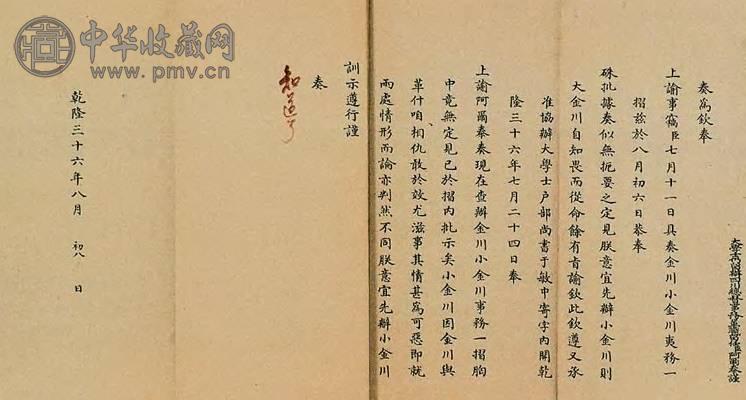 中华收藏网
www.pmv.cn
奏為欽奉
上諭事竊臣七月十一日具奏金川小金川夷務一
摺茲於八月初六日恭奉
硃批據奏似無扼要之定見朕意宜先辦小金川則
大金川自知畏而從命餘有旨諭欽此欽遵又承
准協辦大學士戶部尚書于敏中寄字內開乾
隆三十六年七月二十四日奉
上諭阿爾泰奏現在查辦金川小金川事務一摺胸
中竟無定見已於摺內批示矣小金川因金川與
革什咱相仇敢於效尤滋事其情甚為可惡即就
兩處情形而論亦判然不同朕意宜先辦小金川
訓示遵行謹
奏
知道了
乾隆三十六年八月 初八 日